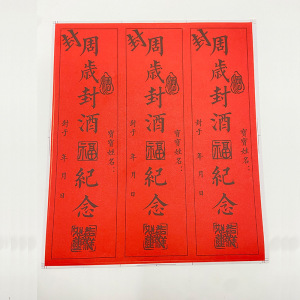 封
周歲封酒福紀念
寶寶姓名：
封于 年 月 日
封
周歲封酒福紀念
寶寶姓名：
封于 年 月 日
封
周歲封酒福紀念
寶寶姓名：
封于 年 月 日